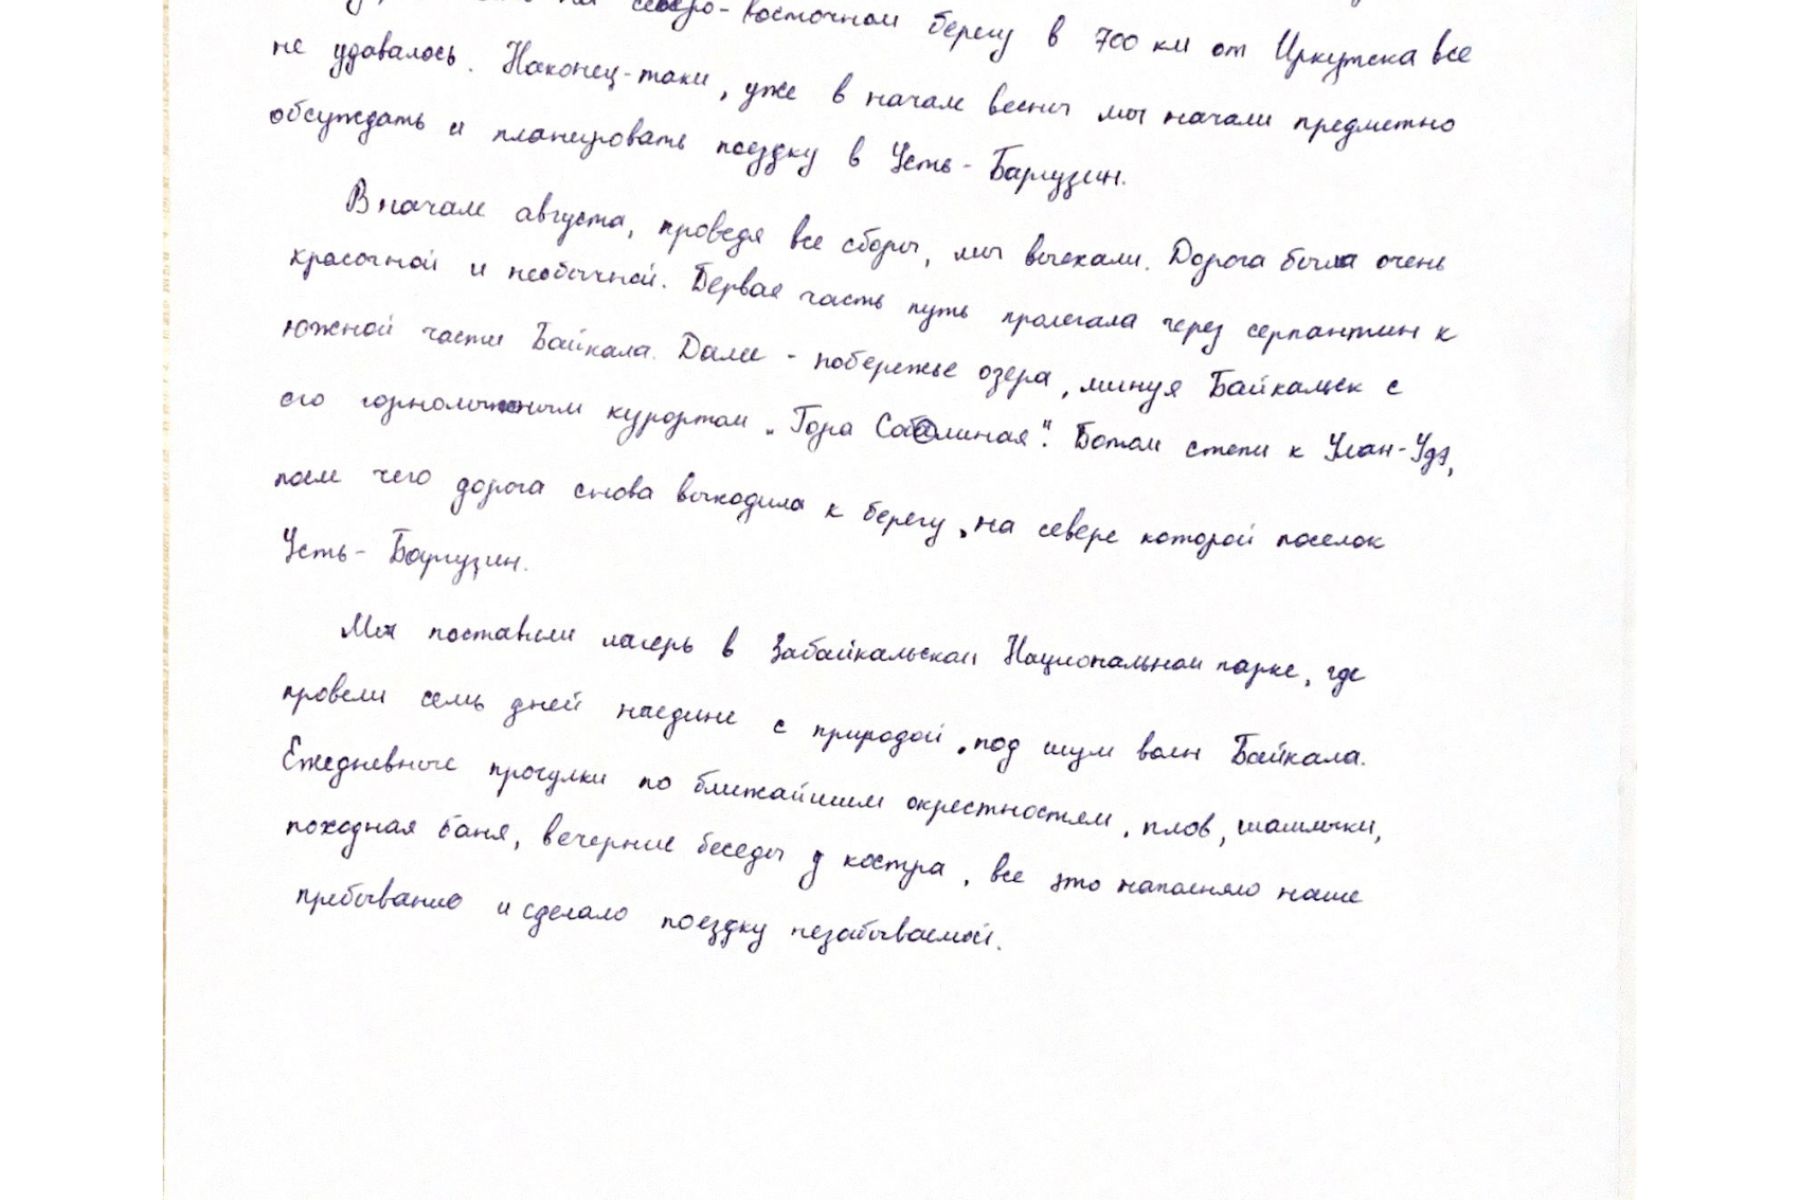 на северо-восточном берегу в 700 км от Иркутска все
не удавалось. Наконец-таки, уже в начале весны мы начали предметно
обсуждать и планировать поездку в Усть-Баргузин.
В начале августа, проведя все сборы, мы выехали. Дорога была очень
красочной и необычной. Первая часть путь пролегала через серпантин к
южной части Байкала. Далее - побережье озера, минуя Байкальск с
его горнолыжным курортом "Гора Соболиная". Потом степи к Улан-Удэ,
после чего дорога снова выходила к берегу, на севере которой поселок
Усть-Баргузин.
Мы поставили лагерь в Забайкальском Национальном парке, где
провели семь дней наедине с природой, под шум волн Байкала.
Ежедневные прогулки по ближайшим окрестностям, плов, шашлыки,
походная баня, вечерние беседы у костра, все это наполняло наше
пребывание и сделало поездку незабываемой.